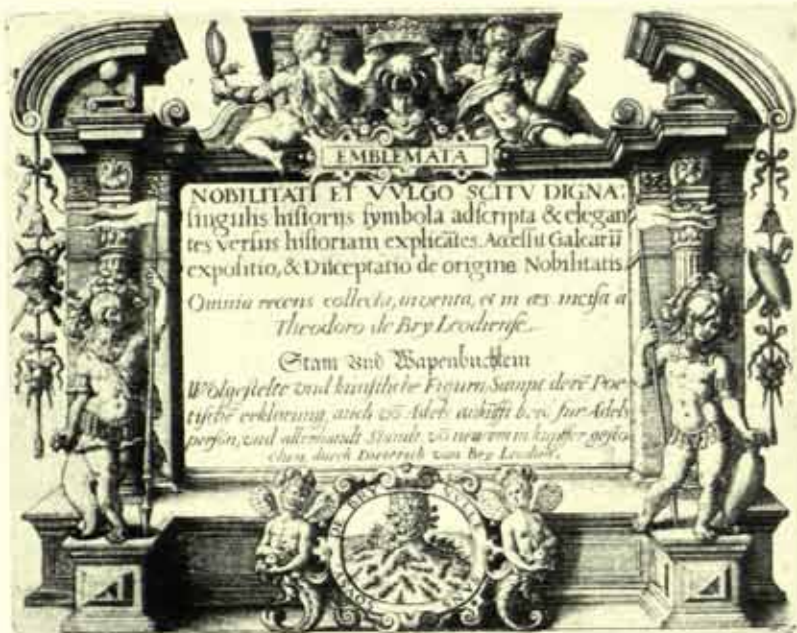 EMBLEMATA
NOBILITATI ET VVLGO SCITV DIGNA:
singulis historijs symbola adscripta & elegan
tes versus historiam explicātes. Accessit Galearū
expositio, & Disceptatio de origine Nobilitatis.
Omnia recens collecta, inventa, et in æs incisa a
Theodoro de Bry Leodiense.
Stam und Wapenbuchlein
Wolgestelte und kunstliche Figurn, Sampt derē Poe
tischē erklerung, auch vō Adels
person, und allerhandt Standt, vō newem in kupffer gesto
chen, durch Dieterich von Bry Leodien.
DE BRY